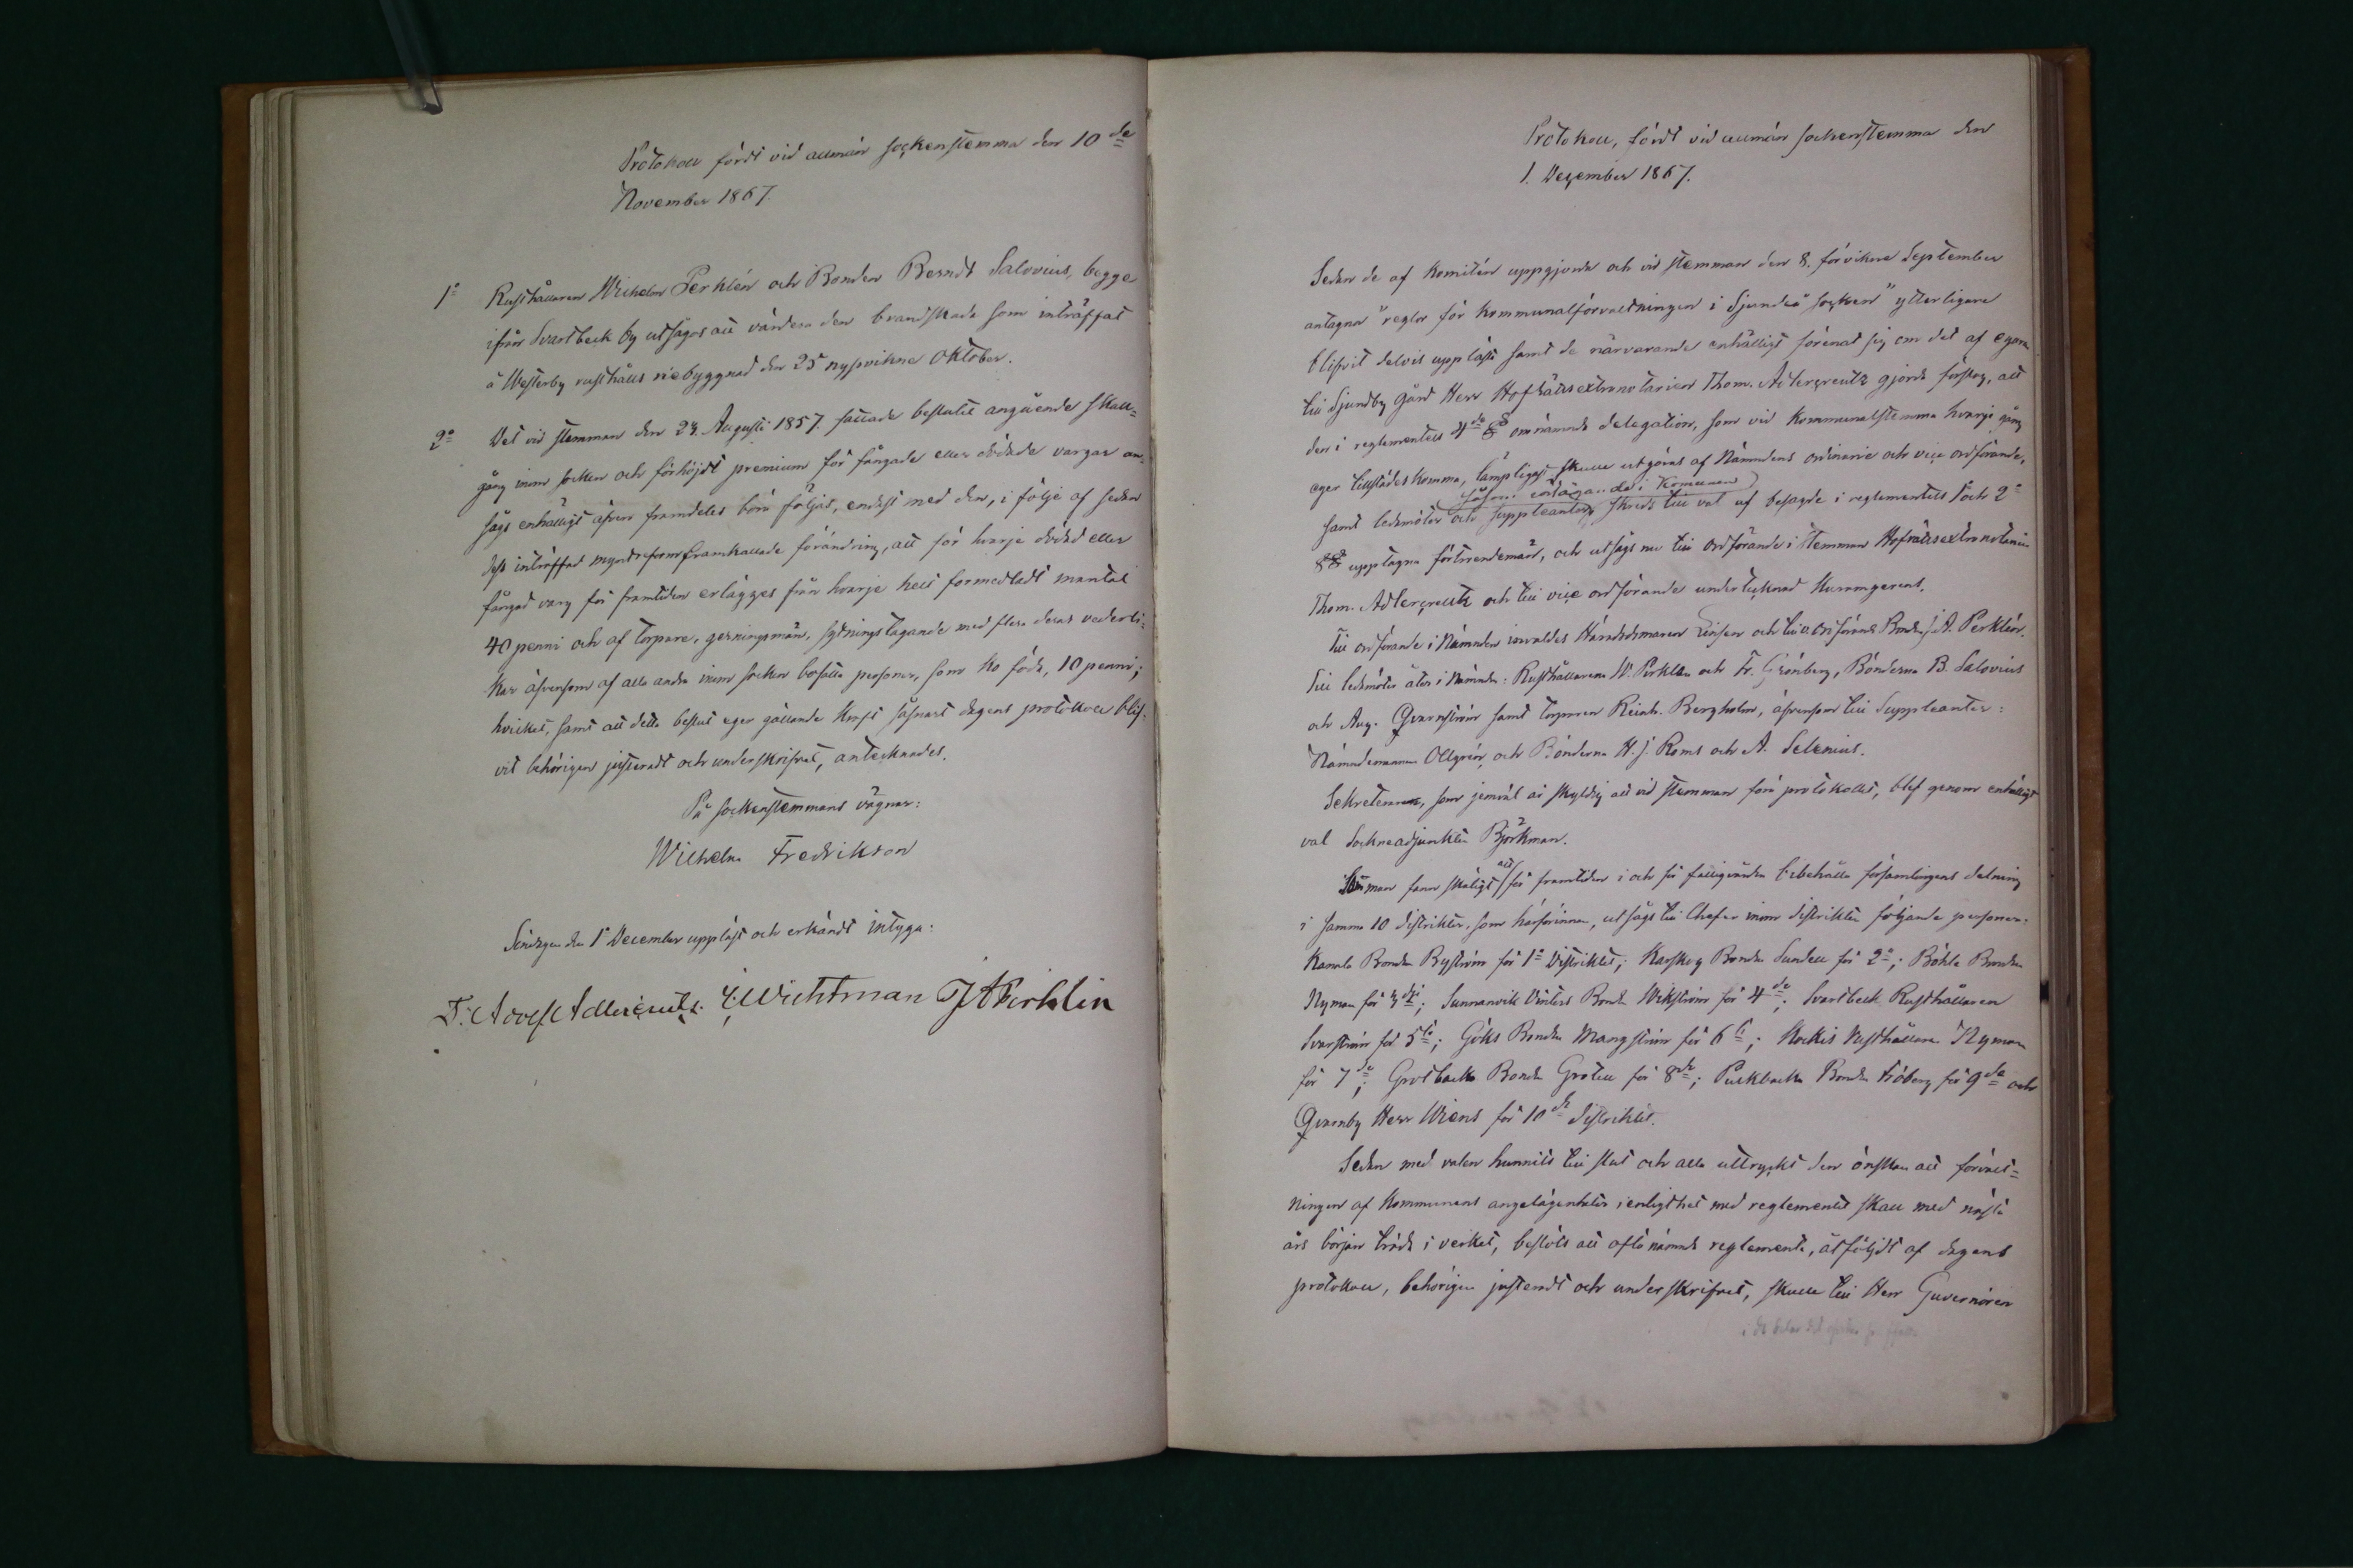 Protokoll fördt vid allmän sockenstemma den 10de
November 1867.
1o Rusthållaren Wilhelm Perklén och Bonden Berndt Salovius, begge
ifrån Svartbeck by utsågos att värdera den brandskada som inträffat
å Westerby rusthålls riebyggnad den 25 nyssvikne Oktober.
2o Det vid stemman den 23. Augusti 1857 fattade beslutet angående skall-
gång inom socken och förhöjdt premium för fångade eller dödade vargar an-
sågs enhälligt äfven framdeles böra följas, endast med den, i följe af sedan
dess inträffad myntreform framkallade förändring, att för hvarje dödad eller
fångad varg för framtiden erlägges från hvarje helt förmedladt mantal
40 penni och af torpare, gerningsmän, sytningstagande med flera deras vederli-
kar äfvensom af alla andra inom socken bosatta personer, som ko föda, 10 penni;
hvilket, samt att detta beslut eger gällande kraft såsnart dagens protokoll blif-
vit behörigen justeradt och underskrifvet, antecknades.
På sockenstemmans vägnar:
Wilhelm Fredrikson
Söndagen den 1 December uppläst och erkändt intyga:
T: Adolf Adlercreutz. E. Wichtman J A Perklén
Protokoll, fördt vid allmän sockenstemma den
1. December 1867.
Sedan de af Komitén uppgjorda och vid stemman den 8. förvikne September
antagna "reglor för Kommunalförvaltningen i Sjundeå socken" ytterligare
blifvit delvis upplästa samt de närvarande enhälligt förenat sig om det af egaren
till Sjundby gård Herr Hofrättsextranotarien Thom. Adlercreutz gjorda förslag, att
den i reglementets 4de § omnämnda delegation, som vid Kommunalstemma hvarje gång
eger tillstädeskomma, lämpligast skulle utgöras af Nämndens ordinarie och vice ordförande,
såsom i Kommunen
samt ledamöter och suppleanter, skreds till val af besagde i reglementets 1o och 2o
§§ upptagna förtroendemän, och utsågs nu till ordförande i Stemman Hofrättsextranotarien
Thom. Adlercreutz och till vice ordförande undertecknad Kummgerent.
Till ordförande i Nämnden invaldes Häradsdomaren Linsen och till v. ordförande Bonden J. A. Perklén.
Till ledamöter åter i Nämnden: Rusthållarena W. Perklén och Fr. Grönberg, Bönderna B. Salovius
och Aug. Qvarnström samt torparen Reinh. Bergholm, äfvensom till Suppleanter:
Nämndemannen Ollgrén, och Bönderna H. J. Roms och A. Selenius.
Sekreteraren, som jemväl är skyldig att vid stemman föra protokollet, blef genom enhälligt
val Sockneadjunkten Björkman.
Stemman fann skäligt att för framtiden i och för fattigvården bibehålla församlingens delning
i samma 10 distrikter, som härförinnan, utsågs till Chefer inom distrikten följande personer:
Kanala Bonden Byström för 1a Distriktet; Karskog Bonden Sundell för 2a; Böhle Bonden
Nyman för 3dje; Sunnanvik Vinters Bonden Wikström för 4de; Svartbeck Rusthållaren
Svarström för 5te; Göks Bonden Mangström för 6te; Kockis Rusthållaren Nyman
för 7de; Grotbacka Bonden Grotell för 8de; Puckbacka Bonden Fröberg för 9de och
Qvarnby Herr Wiens för 10de distriktet.
Sedan med valen hunnits till slut och alla uttryckt den önskan att förvalt-
ningen af Kommunens angelägenheter i enlighet med reglementet skall med nästa
års början träda i verket, beslöts att ofta nämnda reglemente, åtföljdt af dagens
protokoll, behörigen justeradt och underskrifvet, skulle till Herr Guvernören